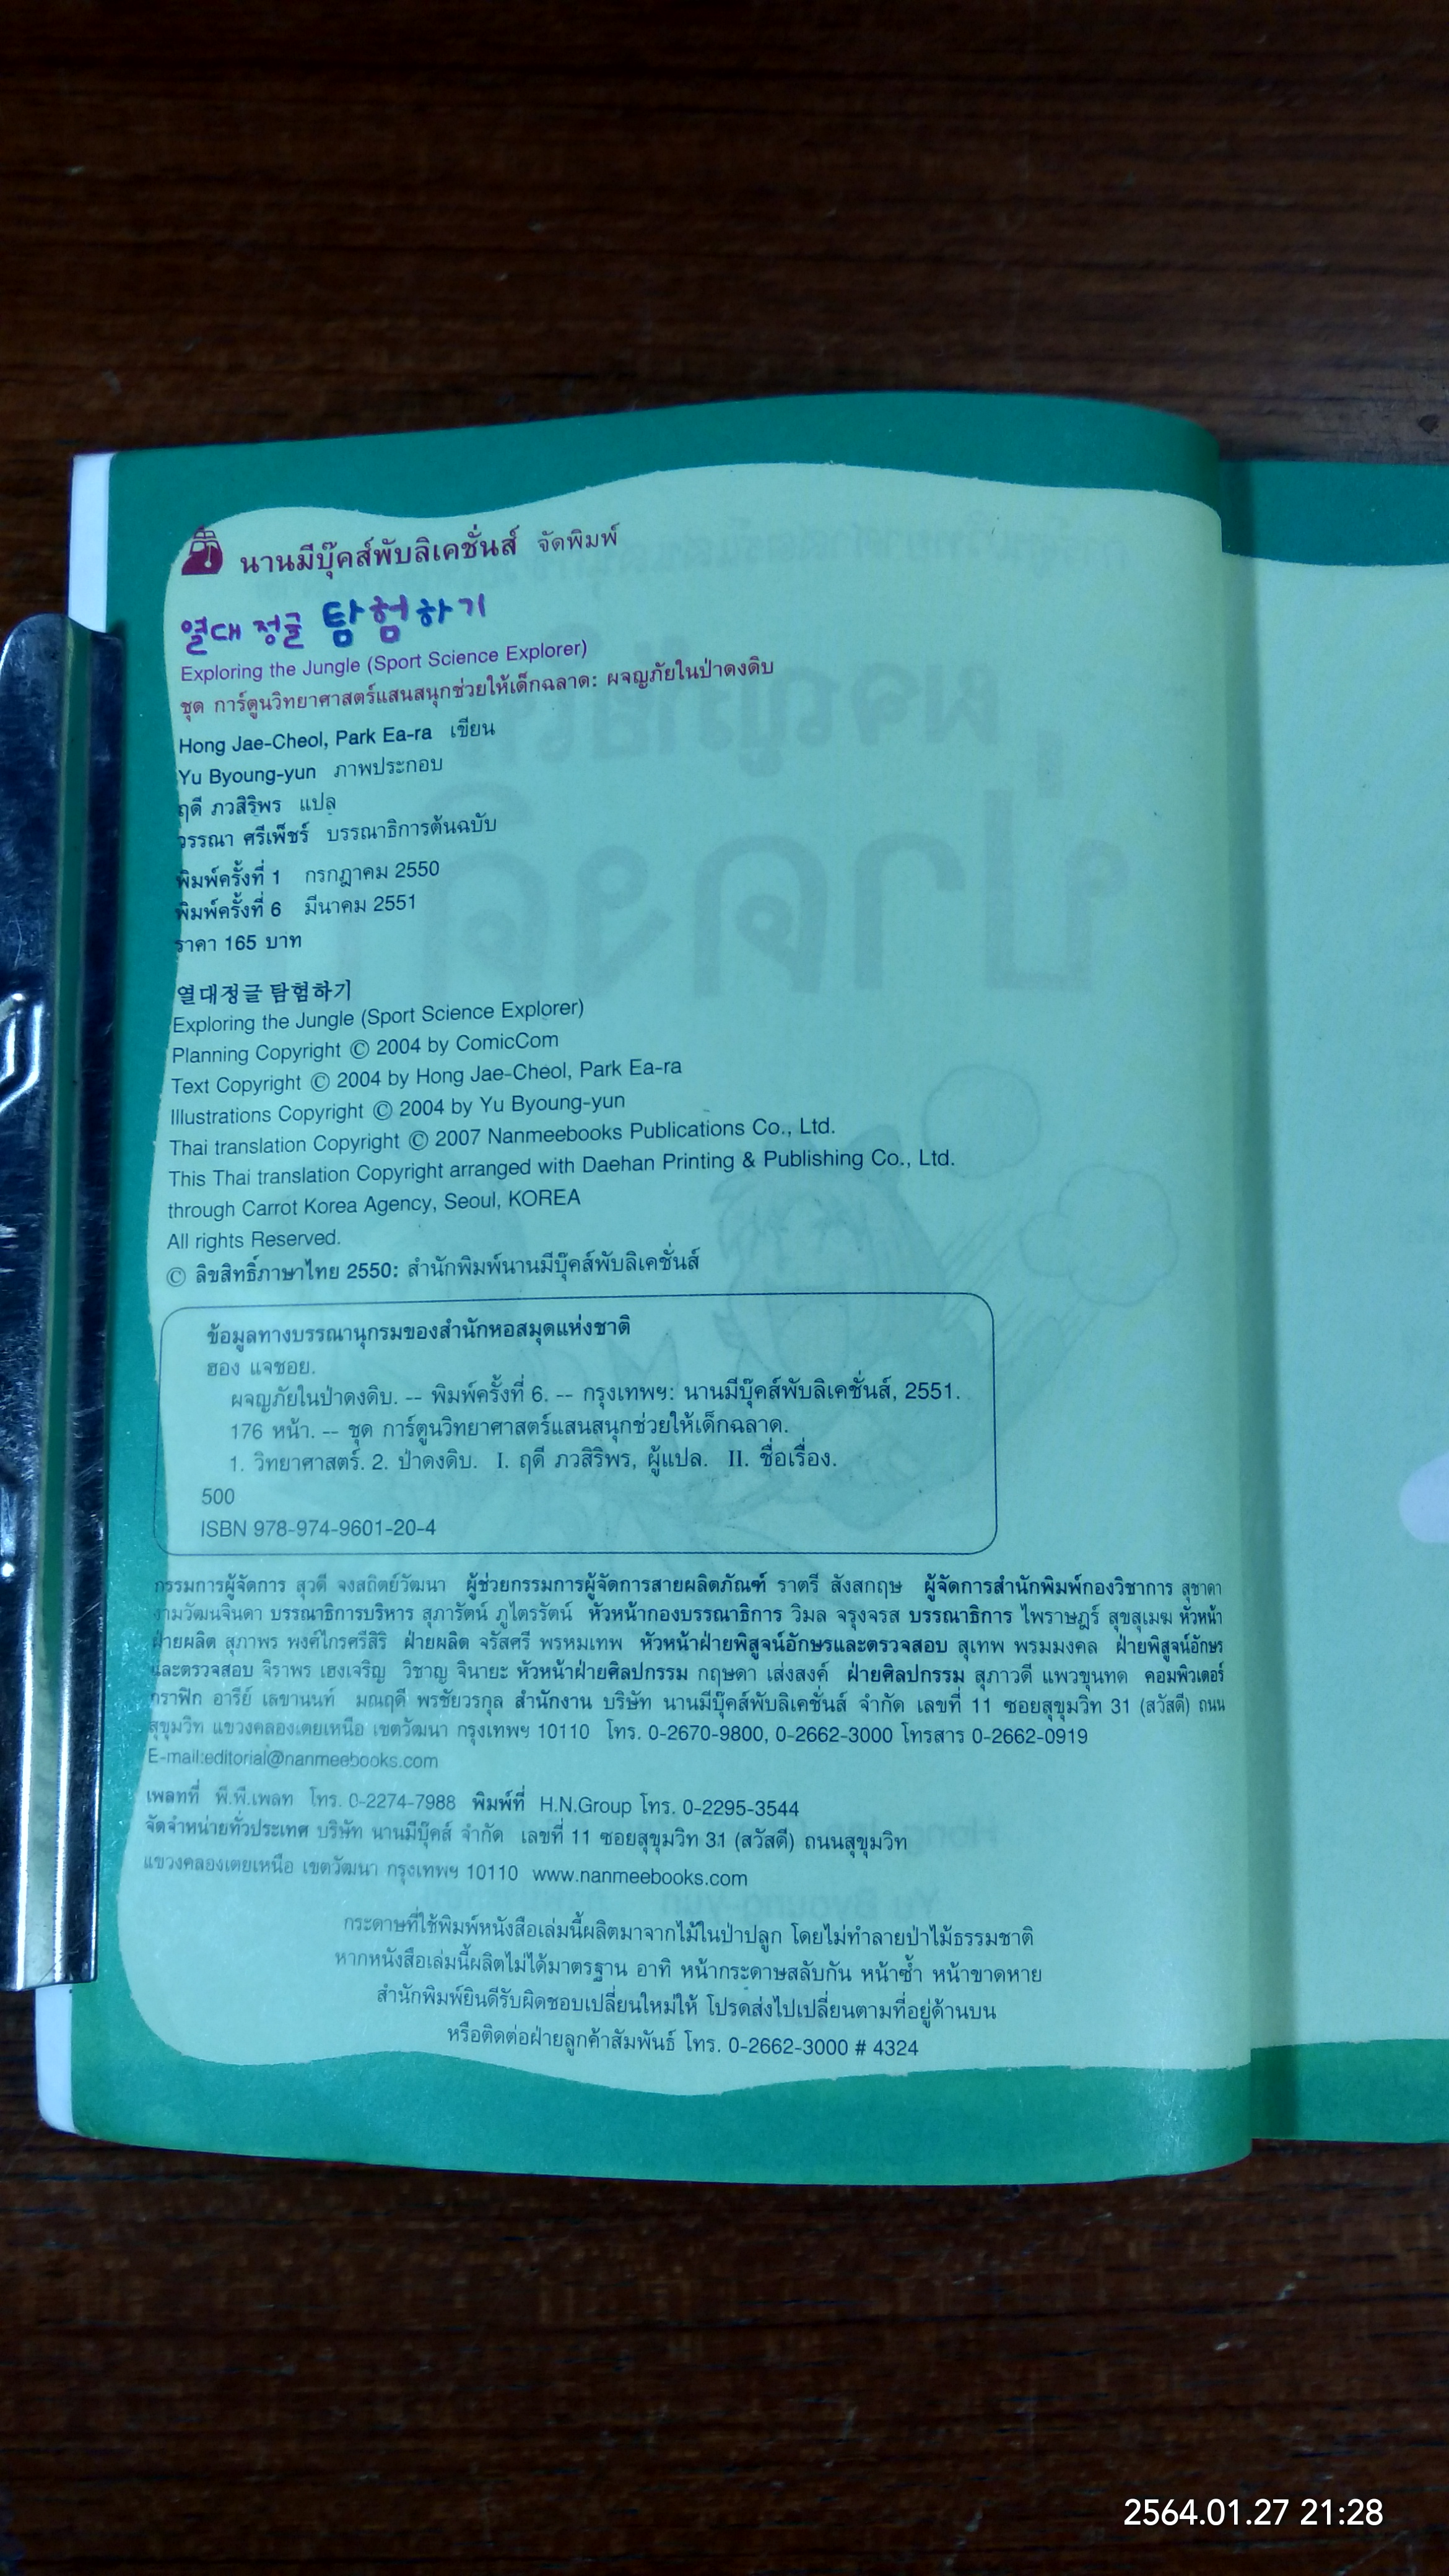 นานมีบุ๊คส์พับลิเคชั่นส์ จัดพิมพ์
열대 정글 탐험하기
Exploring the Jungle (Sport Science Explorer)
ชุด การ์ตูนวิทยาศาสตร์แสนสนุกช่วยให้เด็กฉลาด: ผจญภัยในป่าดงดิบ
Hong Jae-Cheol, Park Ea-ra เขียน
Yu Byoung-yun ภาพประกอบ
ฤดี ภวสิริพร แปล
วรรณา ศรีเพ็ชร์ บรรณาธิการต้นฉบับ
พิมพ์ครั้งที่ 1 กรกฎาคม 2550
พิมพ์ครั้งที่ 6 มีนาคม 2551
ราคา 165 บาท
열대정글 탐험하기
Exploring the Jungle (Sport Science Explorer)
Planning Copyright © 2004 by ComicCom
Text Copyright © 2004 by Hong Jae-Cheol, Park Ea-ra
Illustrations Copyright © 2004 by Yu Byoung-yun
Thai translation Copyright © 2007 Nanmeebooks Publications Co., Ltd.
This Thai translation Copyright arranged with Daehan Printing & Publishing Co., Ltd.
through Carrot Korea Agency, Seoul, KOREA
All rights Reserved.
© ลิขสิทธิ์ภาษาไทย 2550: สำนักพิมพ์นานมีบุ๊คส์พับลิเคชั่นส์
ข้อมูลทางบรรณานุกรมของสำนักหอสมุดแห่งชาติ
ฮอง แจชอย.
ผจญภัยในป่าดงดิบ. -- พิมพ์ครั้งที่ 6. -- กรุงเทพฯ: นานมีบุ๊คส์พับลิเคชั่นส์, 2551.
176 หน้า. -- ชุด การ์ตูนวิทยาศาสตร์แสนสนุกช่วยให้เด็กฉลาด.
1. วิทยาศาสตร์. 2. ป่าดงดิบ. I. ฤดี ภวสิริพร, ผู้แปล. II. ชื่อเรื่อง.
500
ISBN 978-974-9601-20-4
กรรมการผู้จัดการ สุวดี จงสถิตย์วัฒนา ผู้ช่วยกรรมการผู้จัดการสายผลิตภัณฑ์ ราตรี สังสกฤษ ผู้จัดการสำนักพิมพ์กองวิชาการ สุชาดา
งามวัฒนจินดา บรรณาธิการบริหาร สุภารัตน์ ภูไตรรัตน์ หัวหน้ากองบรรณาธิการ วิมล จรุงจรส บรรณาธิการ ไพราษฎร์ สุขสุเมฆ หัวหน้า
ฝ่ายผลิต สุภาพร พงศ์ไกรศรีสิริ ฝ่ายผลิต จรัสศรี พรหมเทพ หัวหน้าฝ่ายพิสูจน์อักษรและตรวจสอบ สุเทพ พรมมงคล ฝ่ายพิสูจน์อักษร
และตรวจสอบ จิราพร เฮงเจริญ วิชาญ จินายะ หัวหน้าฝ่ายศิลปกรรม กฤษดา เส่งสงค์ ฝ่ายศิลปกรรม สุภาวดี แพวขุนทด คอมพิวเตอร์
กราฟิก อารีย์ เลขานนท์ มณฤดี พรชัยวรกุล สำนักงาน บริษัท นานมีบุ๊คส์พับลิเคชั่นส์ จำกัด เลขที่ 11 ซอยสุขุมวิท 31 (สวัสดี) ถนน
สุขุมวิท แขวงคลองเตยเหนือ เขตวัฒนา กรุงเทพฯ 10110 โทร. 0-2670-9800, 0-2662-3000 โทรสาร 0-2662-0919
E-mail:editorial@nanmeebooks.com
เพลทที่ พี.พี.เพลท โทร. 0-2274-7988 พิมพ์ที่ H.N.Group โทร. 0-2295-3544
จัดจำหน่ายทั่วประเทศ บริษัท นานมีบุ๊คส์ จำกัด เลขที่ 11 ซอยสุขุมวิท 31 (สวัสดี) ถนนสุขุมวิท
แขวงคลองเตยเหนือ เขตวัฒนา กรุงเทพฯ 10110 www.nanmeebooks.com
กระดาษที่ใช้พิมพ์หนังสือเล่มนี้ผลิตมาจากไม้ในป่าปลูก โดยไม่ทำลายป่าไม้ธรรมชาติ
หากหนังสือเล่มนี้ผลิตไม่ได้มาตรฐาน อาทิ หน้ากระดาษสลับกัน หน้าซ้ำ หน้าขาดหาย
สำนักพิมพ์ยินดีรับผิดชอบเปลี่ยนใหม่ให้ โปรดส่งไปเปลี่ยนตามที่อยู่ด้านบน
หรือติดต่อฝ่ายลูกค้าสัมพันธ์ โทร. 0-2662-3000 # 4324
2564.01.27 21:28